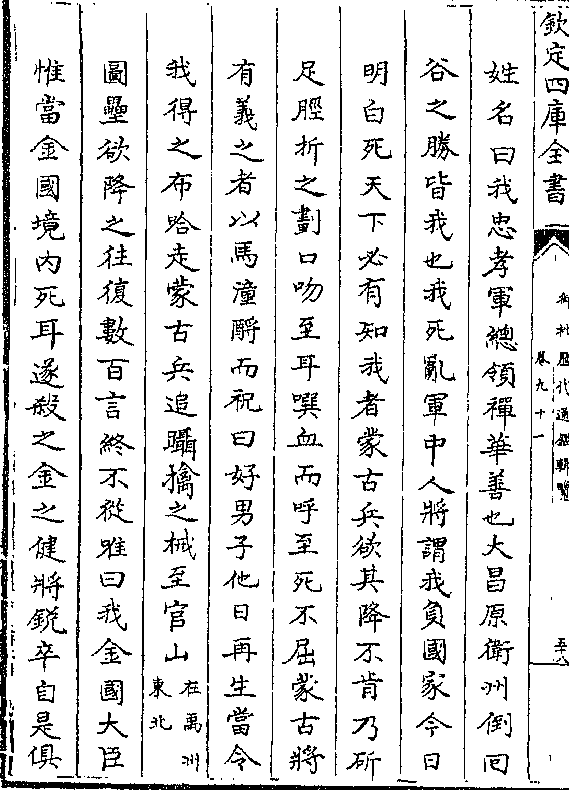 欽定四庫全書
御批歷代通鑑輯覽
卷九十一
姓名曰我忠孝軍總領禪華善也大昌原衛州倒回
谷之勝皆我也我死亂軍中人將謂我負國家今日
明白死天下必有知我者蒙古兵欲其降不肯乃斫
足脛折之劃口吻至耳噀血而呼至死不屈蒙古將
有義之者以馬潼酹而祝曰好男子他日再生當令
我得之布哈走蒙古兵追躡擒之械至官山在禹州東北
圖壘欲降之往復數百言終不從唯曰我金國大臣
惟當金國境內死耳遂殺之金之健將銳卒自是俱